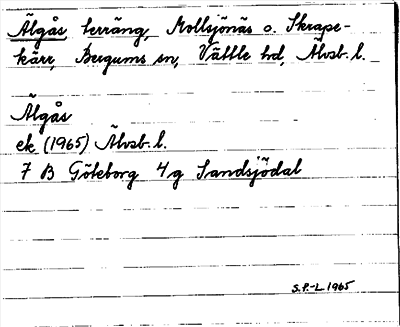 Älgås, terräng, Mollsjönäs o. Skrape-
kärr, Bergums sn, Vättle hd, Älvsb. l.
Älgås
ek (1965) Älvsb. l.
7 B Göteborg 4g Sandsjödal
S.P.-L 1965